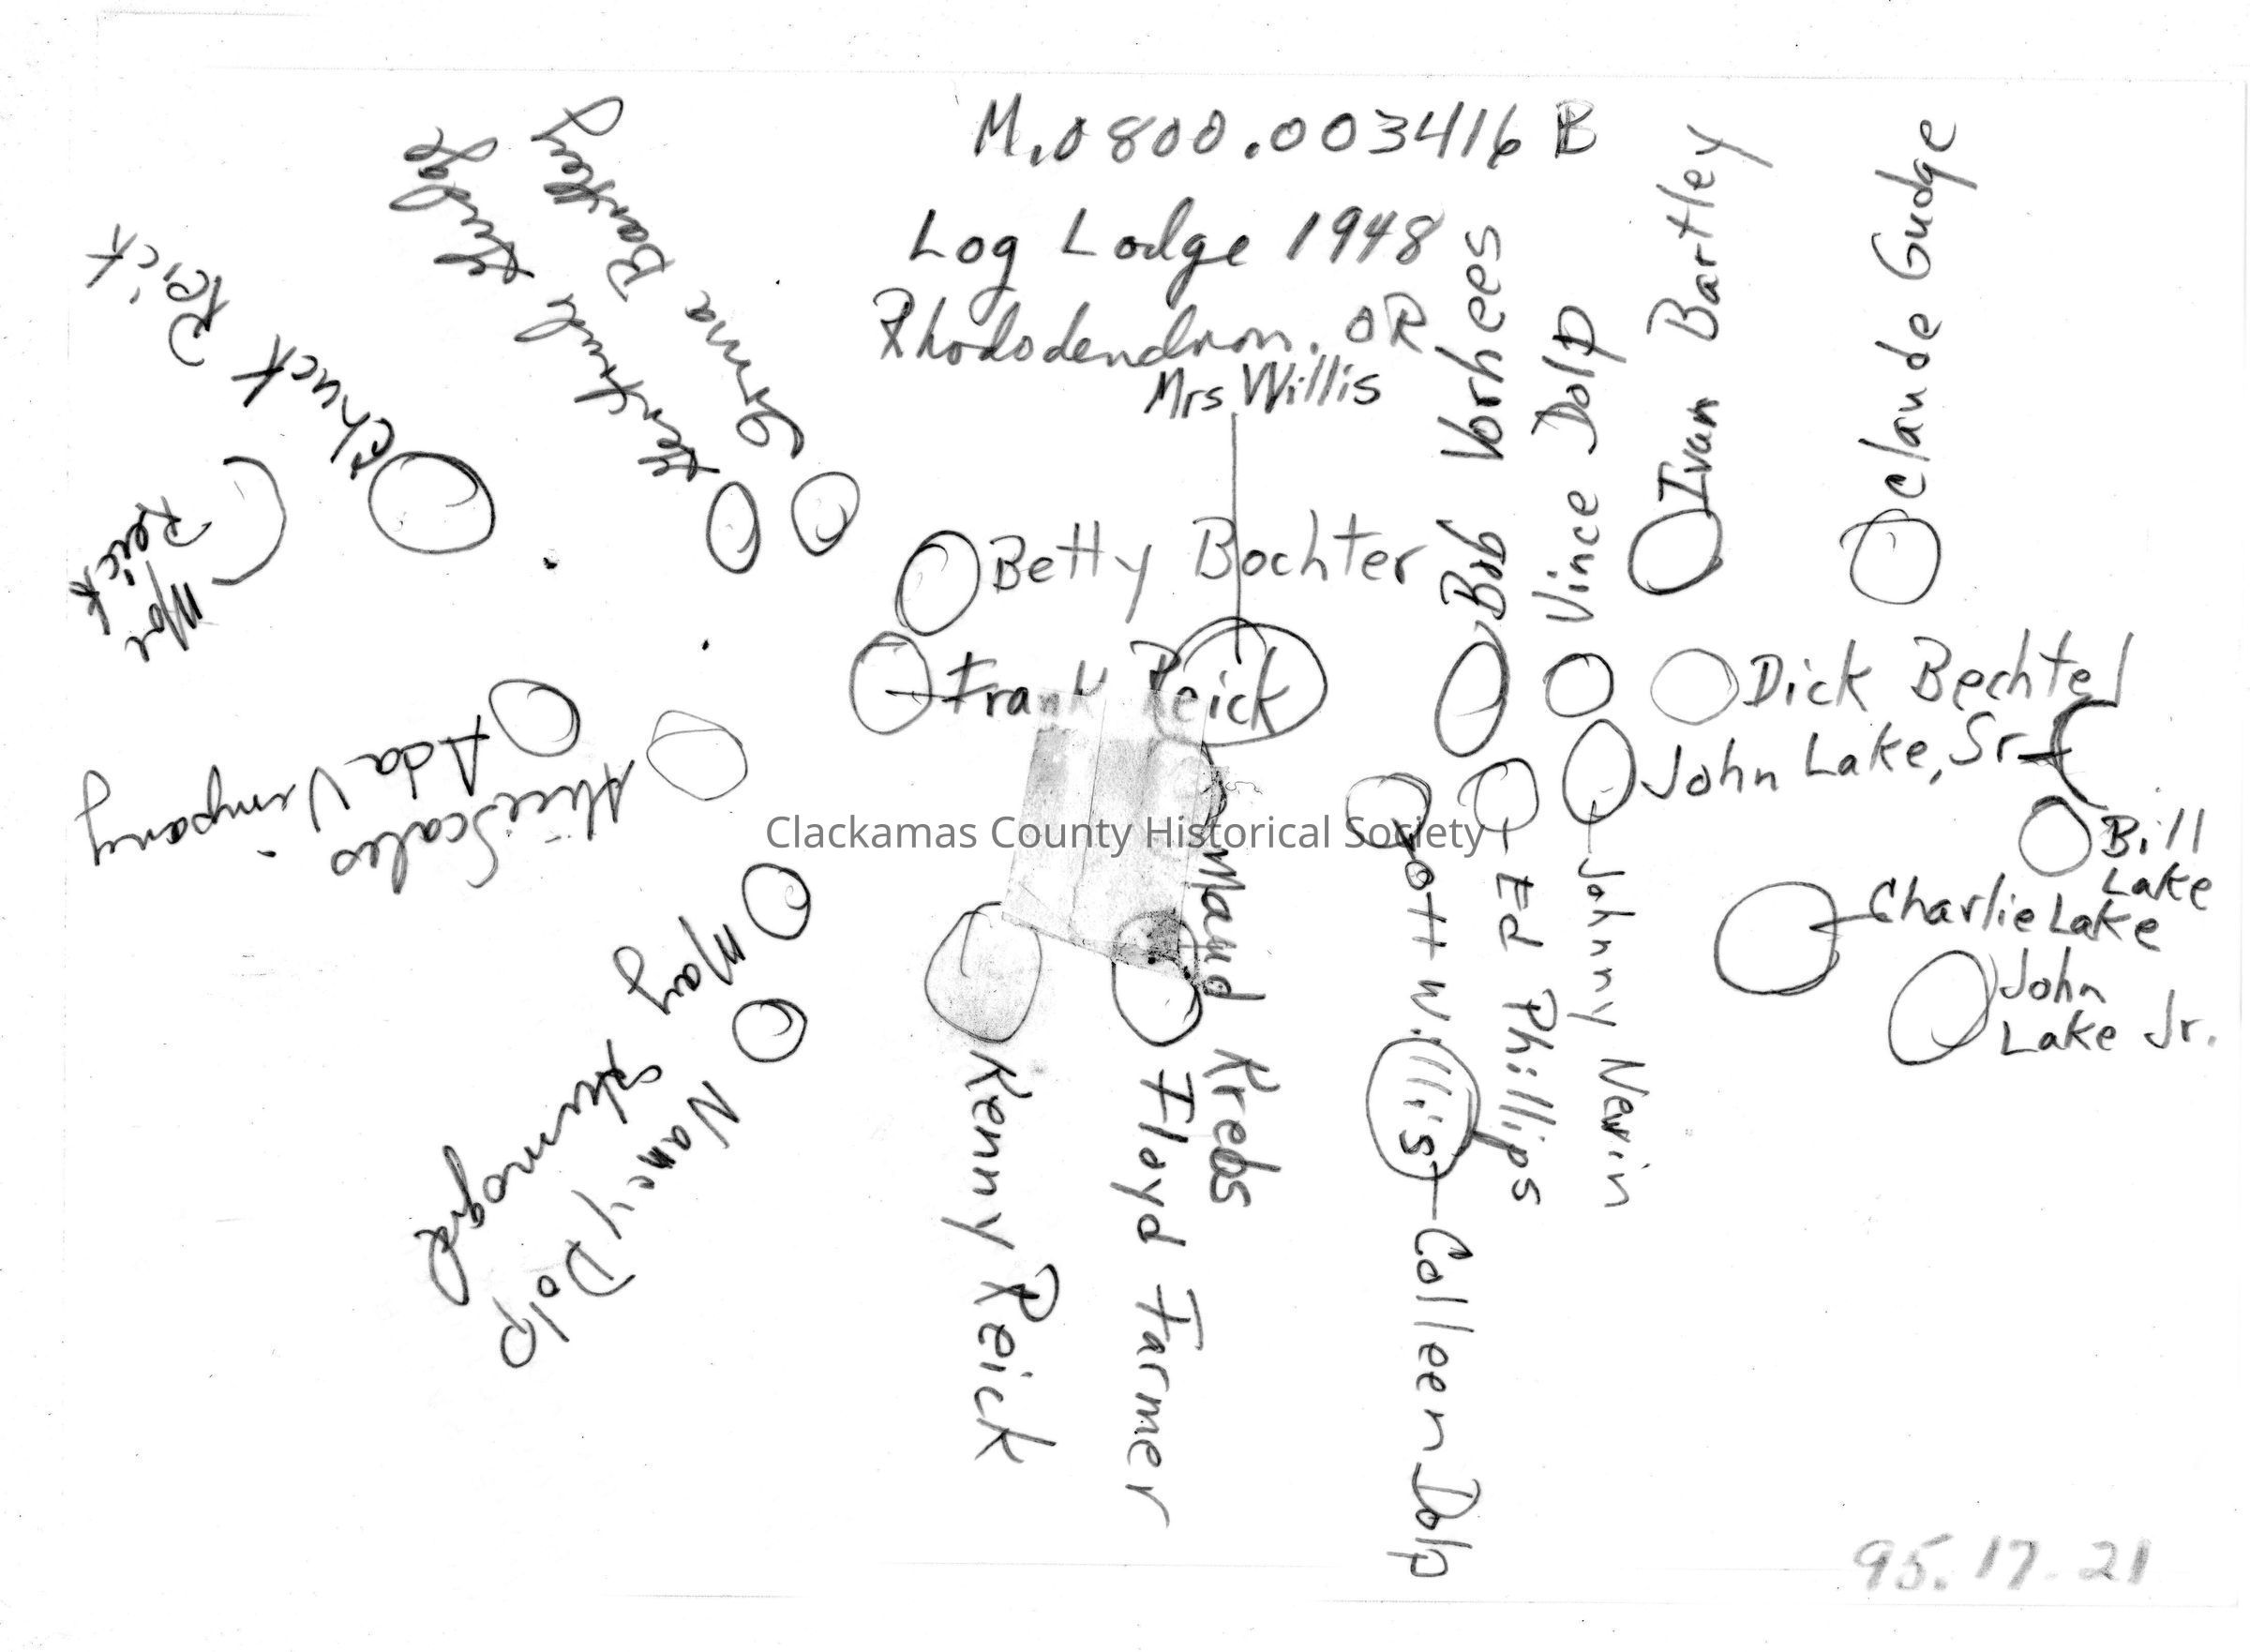 M.0800.003416 B
Log Lodge 1948
Rhododendron. OR
Mrs Willis
Bob Vorhees
Vince Dolp
Ivan Bartley
Claude Gudge
Emma Bartley
Gertrude
Chuck Reick
Moe Reick
Betty Bochter
Frank Reick
Dick Bechtel
John Lake, Sr
Bill
Lake
Charlie Lake
John
Lake Jr.
Ada Vrmpany
Alice Scales
Clackamas County Historical Society
May
Nancy Dolp
Kenny Reick
Floyd Farmer
Maud Krebs
Ott Willis
Colleen Dolp
Ed Phillips
Johnny Nevin
95.17.21